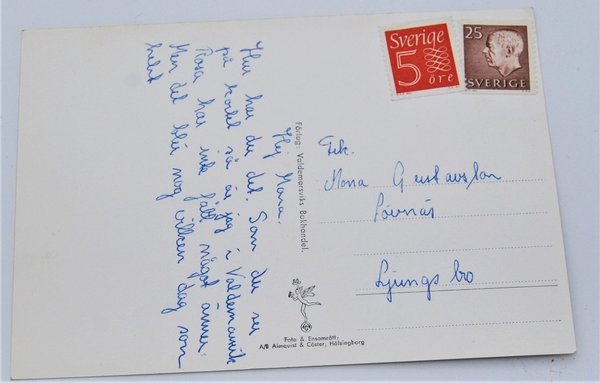 Hej Mona.
Hur har du det. Som du ser
på kortet så är jag i Valdemarsvik
Rosa har inte fått något ännu.
Men det blir nog vilken dag som
helst
Förlag: Valdemarsviks Bokhandel.
Sverige
5
öre
25
SVERIGE
Frk.
Mona Gustavsson
Lövnäs
Ljungsbro
Foto & Ensamrätt:
A/B Almquist & Cöster, Hälsingborg